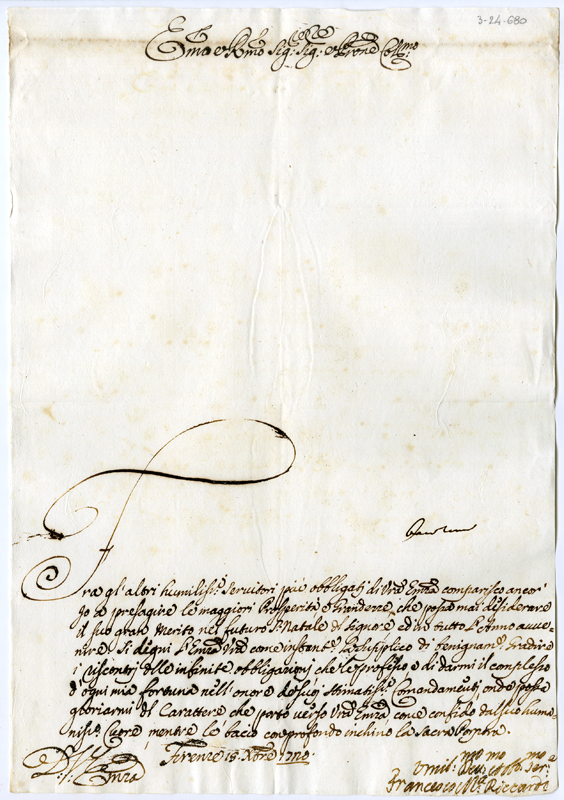 3-24-680
Em̃o e Rm̃o Sig.r Sig.r e Prone Coll.mo
Tra gl'altri humiliss.i servitori più obbligati di Vr̃a Emz̃a comparisco ancor'
Io a presagire le maggiori Prosperità, e Grandezze, che possa mai desiderare
il suo gran Merito nel futuro S. Natale di Signore ed in tutto l'Anno avve-
nire. Si degni l'Emz̃a Vr̃a come instant.e La supplico di benignam.e Gradire
i riscontri delle infinite obbligazioni che le professo e di darmi il complesso
d'ogni mia fortuna nell'onore de suoi stimatiss.i Comandamenti onde possa
gloriarmi del Carattere che porto verso Vr̃a Emz̃a come confido dal suo huma-
niss.o Cuore, mentre le bacio con profondo inchino la Sacra Porpora.
D. V. Emz̃a
Firenze 15 Xbre 1710.
Umil.mo Dev.mo Obb.mo Ser.e
Francesco M.a Riccardi